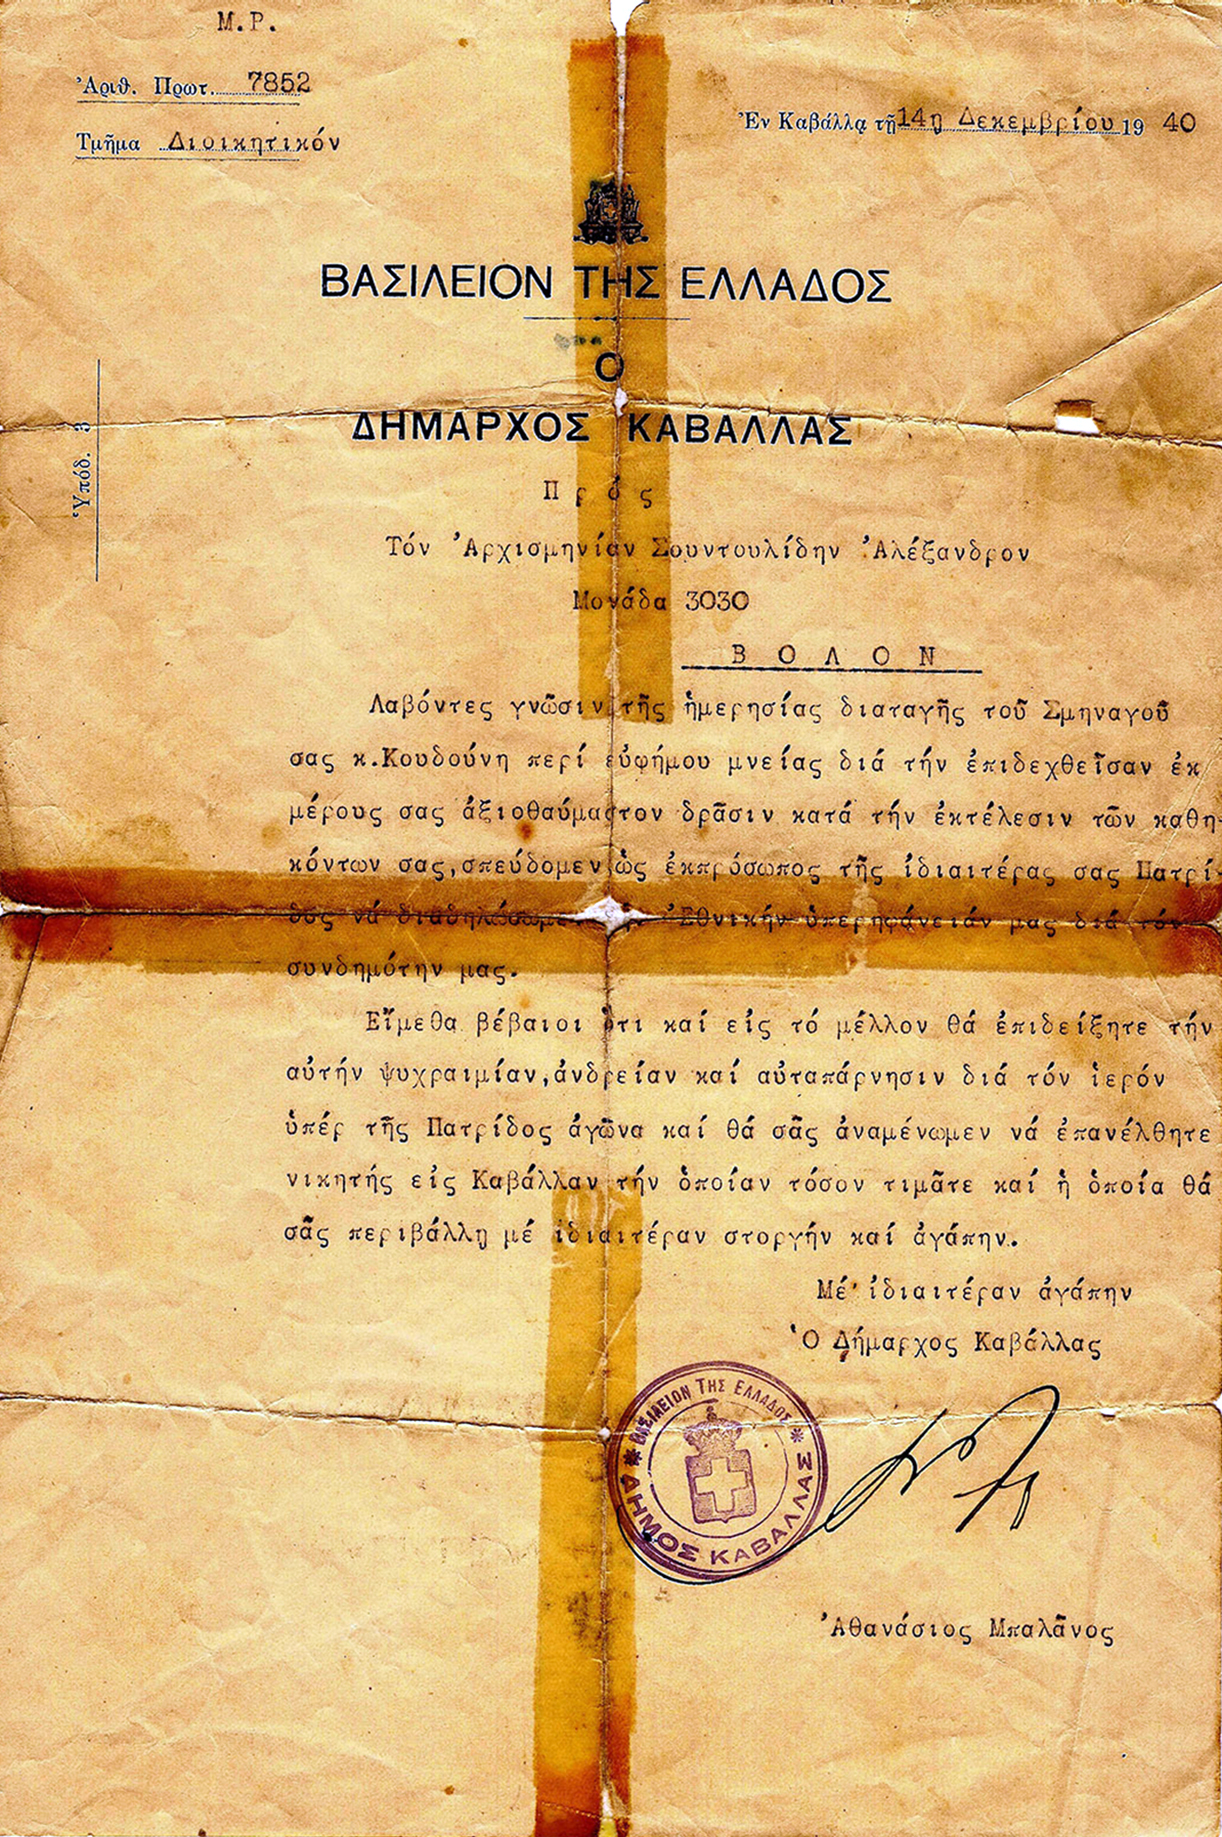 Μ.Ρ.
Ἀριθ. Πρωτ. 7852
Τμῆμα Διοικητικόν
Ἐν Καβάλλᾳ τῇ 14ῃ Δεκεμβρίου 19 40
ΒΑΣΙΛΕΙΟΝ ΤΗΣ ΕΛΛΑΔΟΣ
Ο
ΔΗΜΑΡΧΟΣ ΚΑΒΑΛΛΑΣ
Ὑπόδ. 3
Πρός
Τόν Ἀρχισμηνίαν Σουντουλίδην Ἀλέξανδρον
Μονάδα 3030
ΒΟΛΟΝ
Λαβόντες γνῶσιν τῆς ἡμερησίας διαταγῆς τοῦ Σμηναγοῦ
σας κ.Κουδούνη περί εὐφήμου μνείας διά τήν ἐπιδεχθεῖσαν ἐκ
μέρους σας ἀξιοθαύμαστον δρᾶσιν κατά τήν ἐκτέλεσιν τῶν καθη-
κόντων σας,σπεύδομεν ὡς ἐκπρόσωπος τῆς ἰδιαιτέρας σας Πατρί-
δος νά διαδηλώσωμεν Ἐθνικήν ὑπερηφάνειάν μας διά τόν
συνδημότην μας.
Εἴμεθα βέβαιοι ὅτι καί εἰς τό μέλλον θά ἐπιδείξητε τήν
αὐτήν ψυχραιμίαν,ἀνδρείαν καί αὐταπάρνησιν διά τόν ἱερόν
ὑπέρ τῆς Πατρίδος ἀγῶνα καί θά σᾶς ἀναμένωμεν νά ἐπανέλθητε
νικητής εἰς Καβάλλαν τήν ὁποίαν τόσον τιμᾶτε καί ἡ ὁποία θά
σᾶς περιβάλλῃ μέ ἰδιαιτέραν στοργήν καί ἀγάπην.
Μέ ἰδιαιτέραν ἀγάπην
Ὁ Δήμαρχος Καβάλλας
ΒΑΣΙΛΕΙΟΝ ΤΗΣ ΕΛΛΑΔΟΣ
ΔΗΜΟΣ ΚΑΒΑΛΛΑΣ
Ἀθανάσιος Μπαλᾶνος